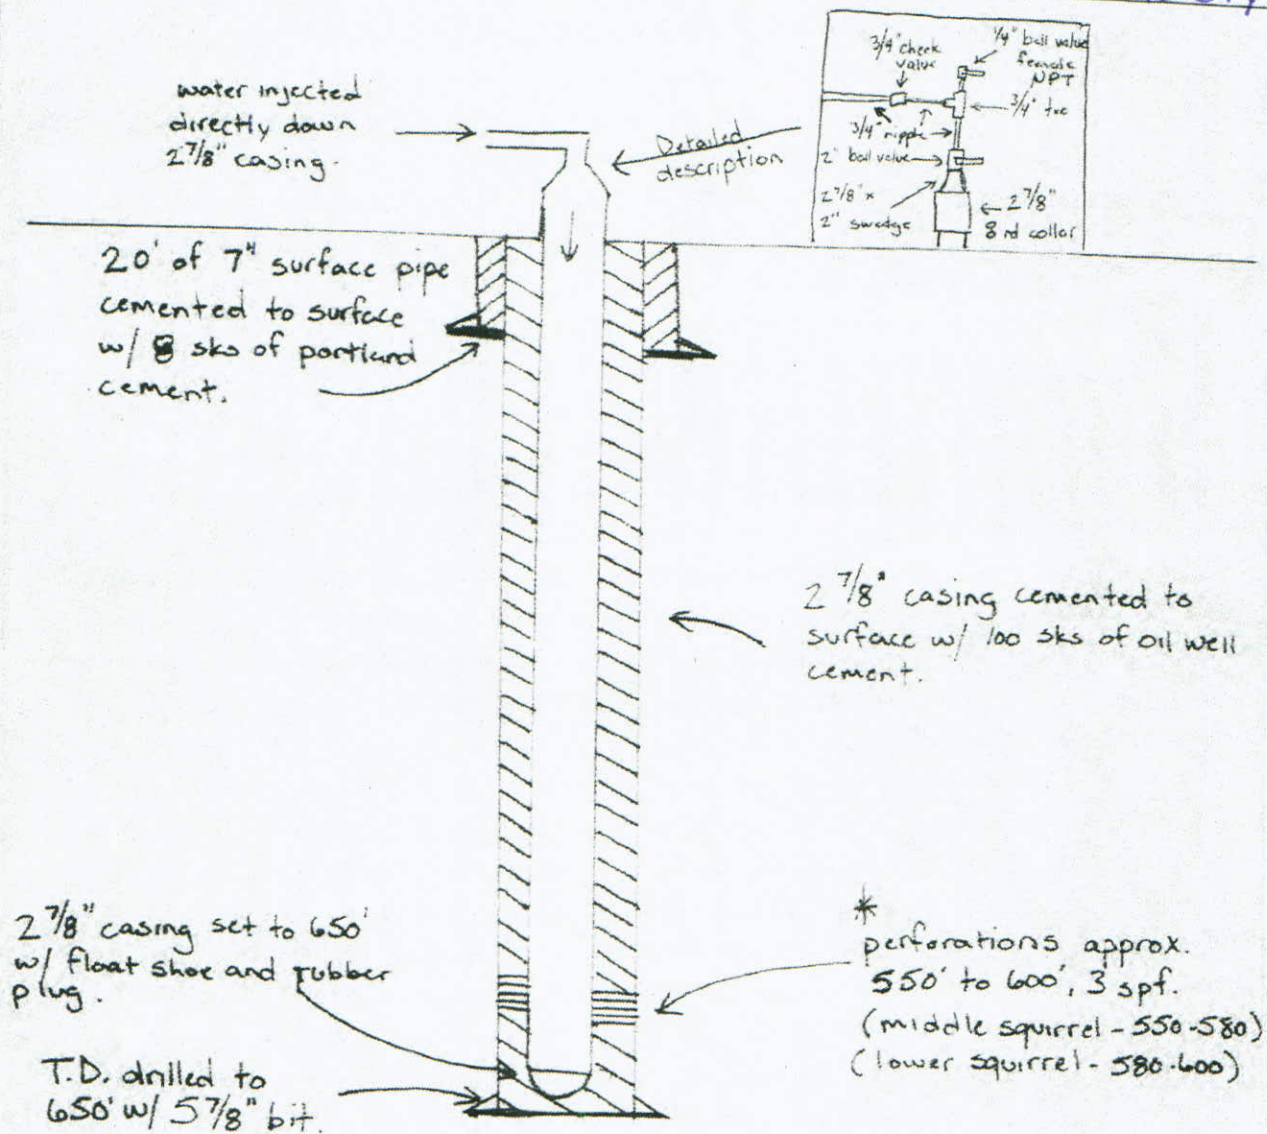 water injected
directly down
2 7/8" casing.
Detailed
description
3/4" check
valve
1/4" ball valve
female
NPT
3/4" tee
3/4" nipple
2" ball valve
2 7/8" x
2" swedge
2 7/8"
8 rd collar
20' of 7" surface pipe
cemented to surface
w/ 8 sks of portland
cement.
2 7/8" casing cemented to
surface w/ 100 sks of oil well
cement.
2 7/8" casing set to 650'
w/ float shoe and rubber
plug.
*
perforations approx.
550' to 600', 3 spf.
(middle squirrel - 550-580)
(lower squirrel - 580-600)
T.D. drilled to
650' w/ 5 7/8" bit.